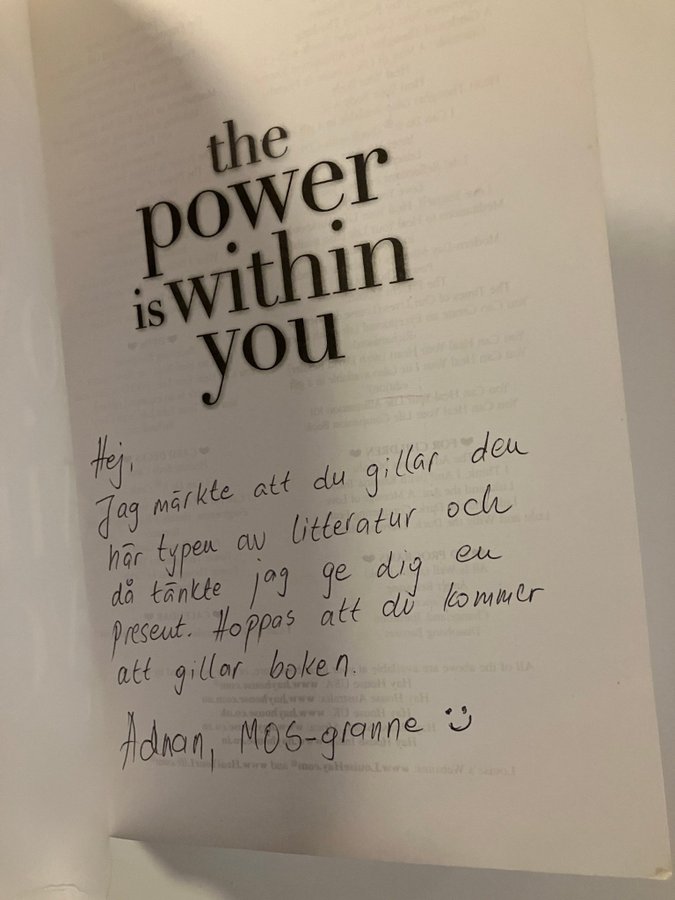 the
power
is within
you
Hej,
Jag märkte att du gillar den
här typen av litteratur och
då tänkte jag ge dig en
present. Hoppas att du kommer
att gillar boken.
Adnan, MOS-granne :)